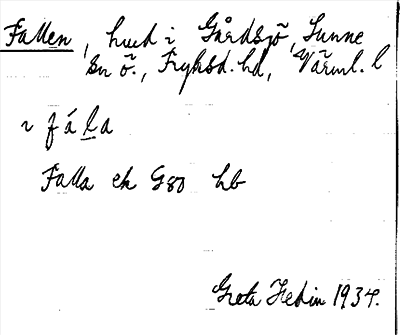 Fallen, hmd i Gårdsjö, Sunne
sn ö., Fryksd. hd, Värml. l
i fála
Falla ek G80 hb
Greta Hedin 1934.